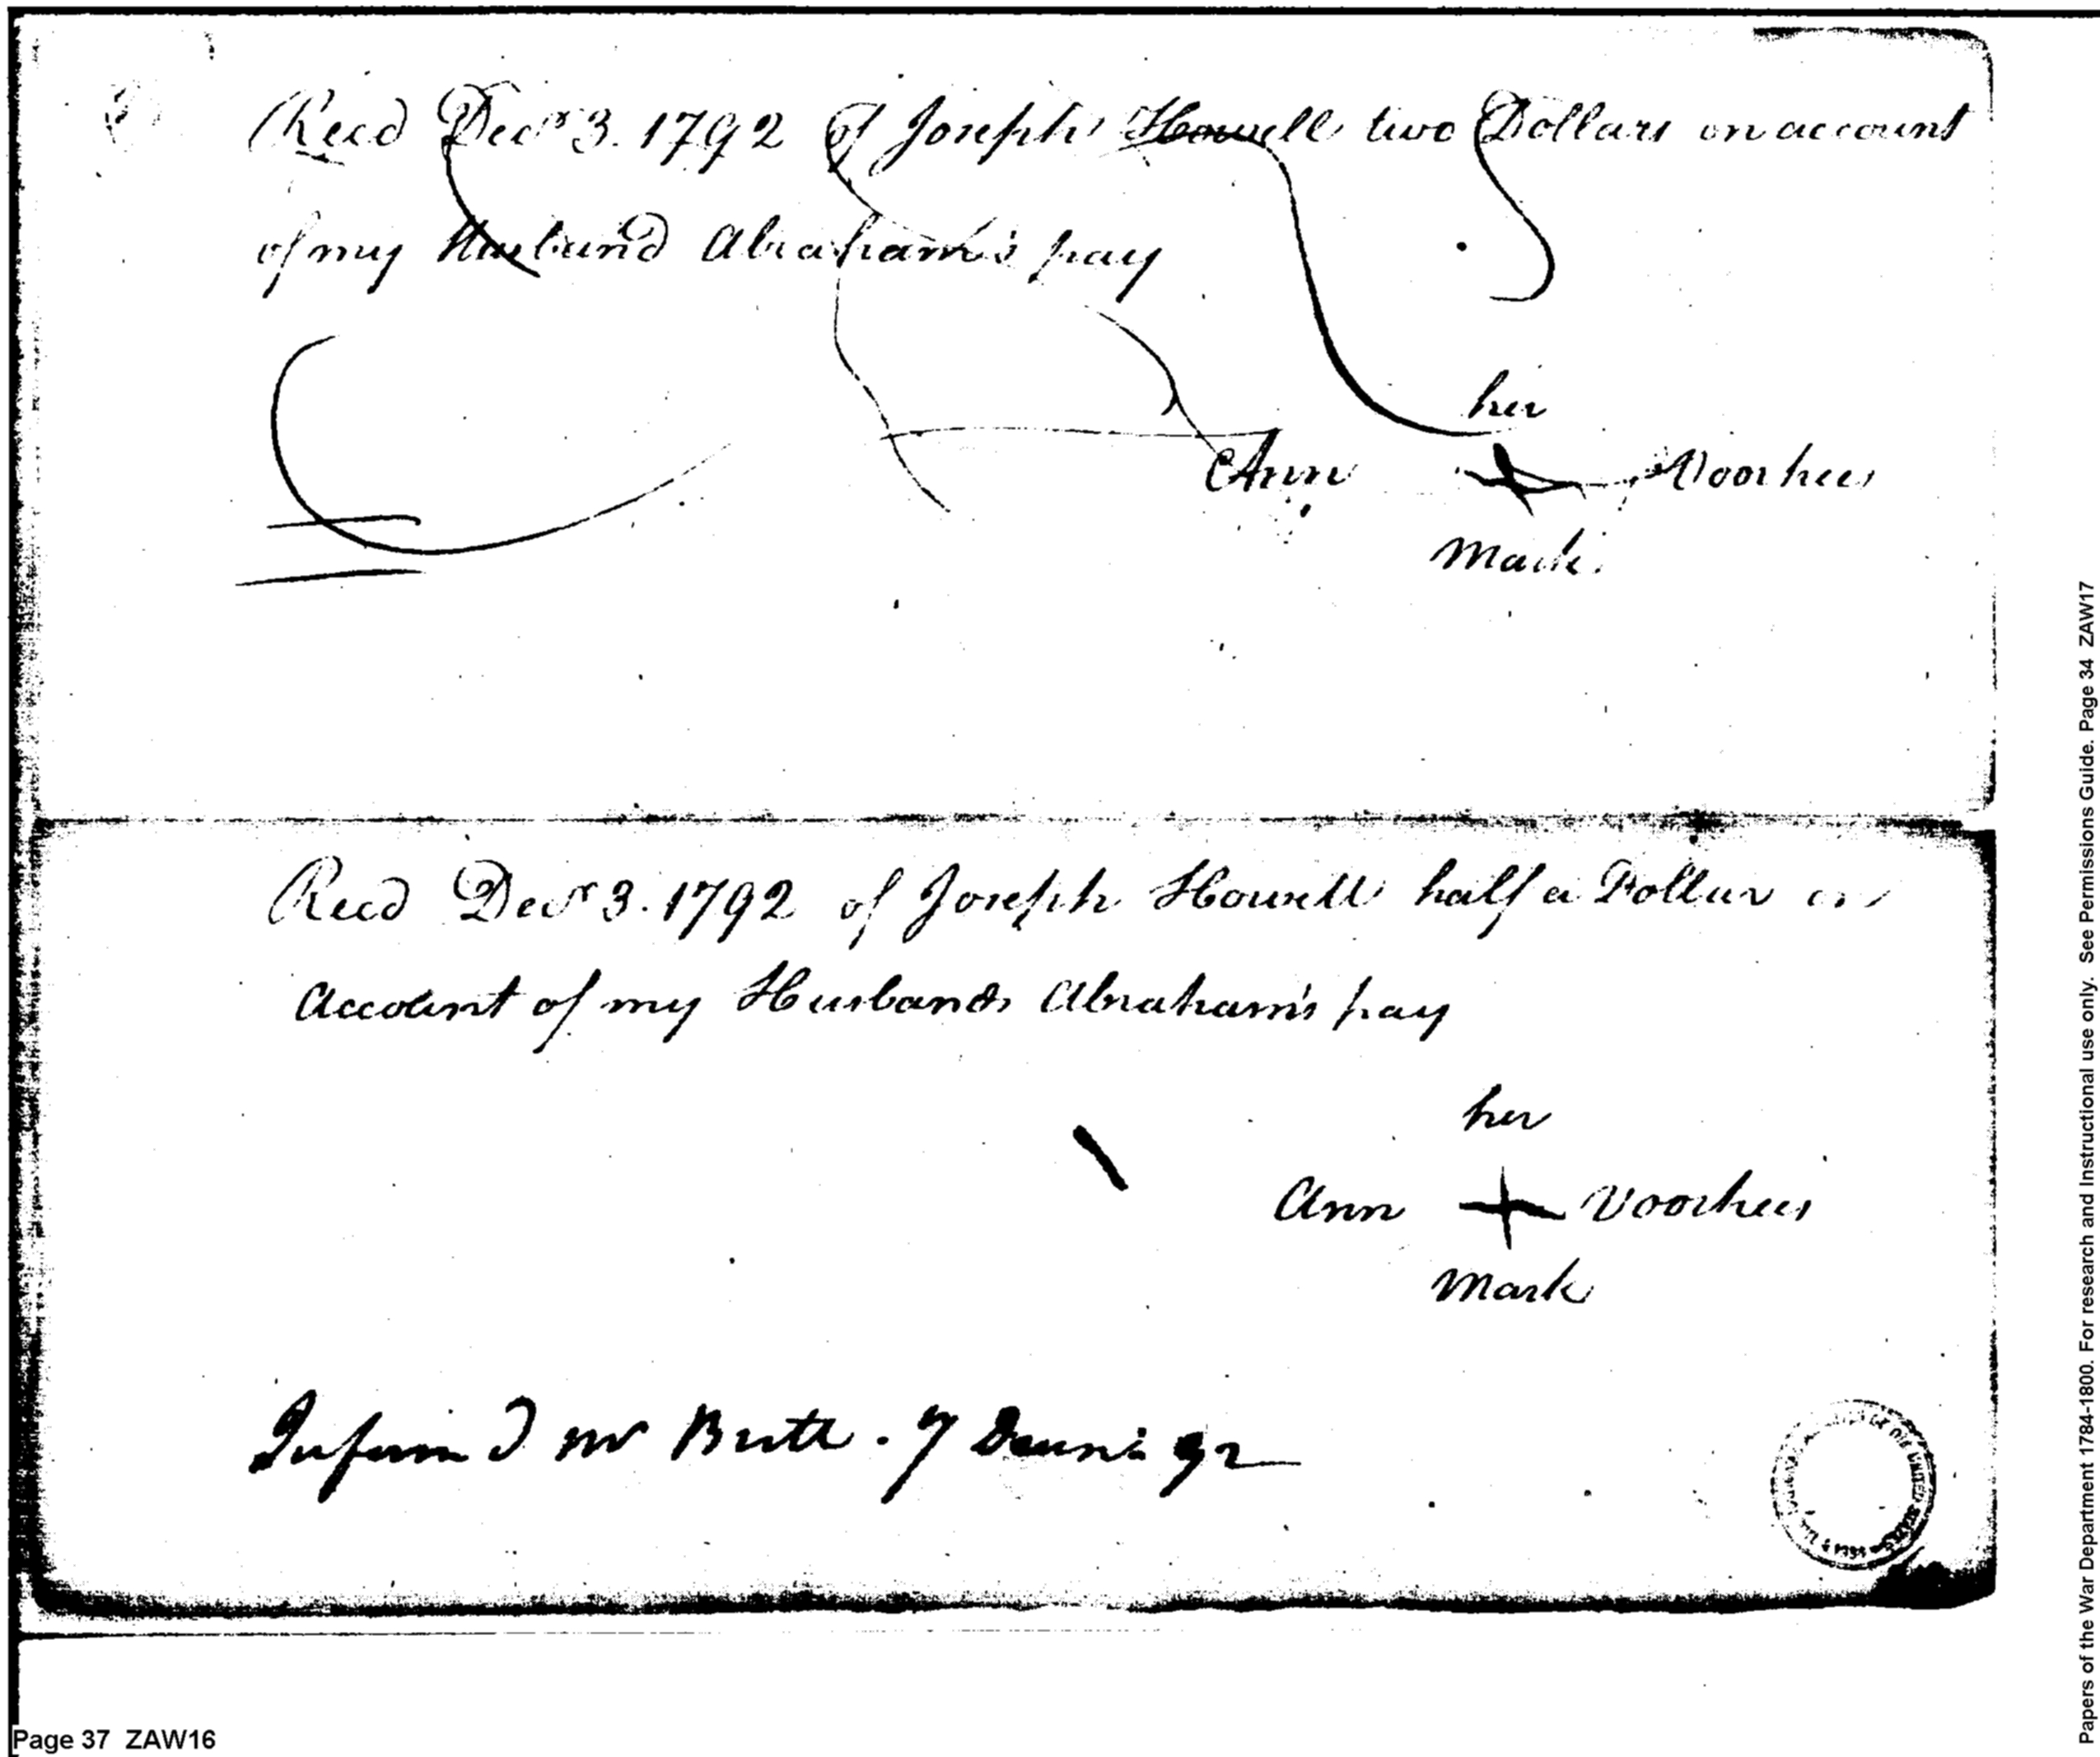 Recd Decr 3. 1792 of Joseph Howell two Dollars on account
of my Husband Abraham's pay
her
Ann Voorhees
Mark.
Recd Decr 3. 1792 of Joseph Howell half a Dollar on
Account of my Husbands Abraham's pay
her
Ann + Voorhees
Mark
Inform'd Mr 7 92
Page 37 ZAW16
Papers of the War Department 1784-1800. For research and Instructional use only. See Permissions Guide. Page 34 ZAW17